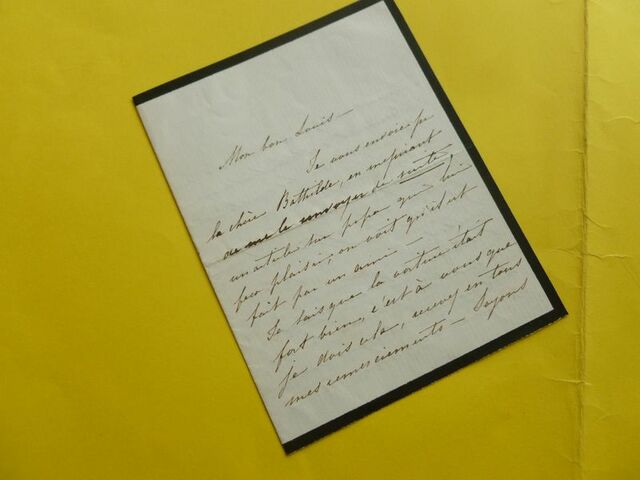 Mon bon Louis —
Je vous envoie par
la chère Bathilde, en
ou me le renvoyer de suite,
un article sur papa qui lui
fera plaisir, on voit qu'il est
fait par un ami —
Je sais que la voiture était
fort bien, c'est à vous que
je dois cela, recevez en tous
mes remerciements — Soyons